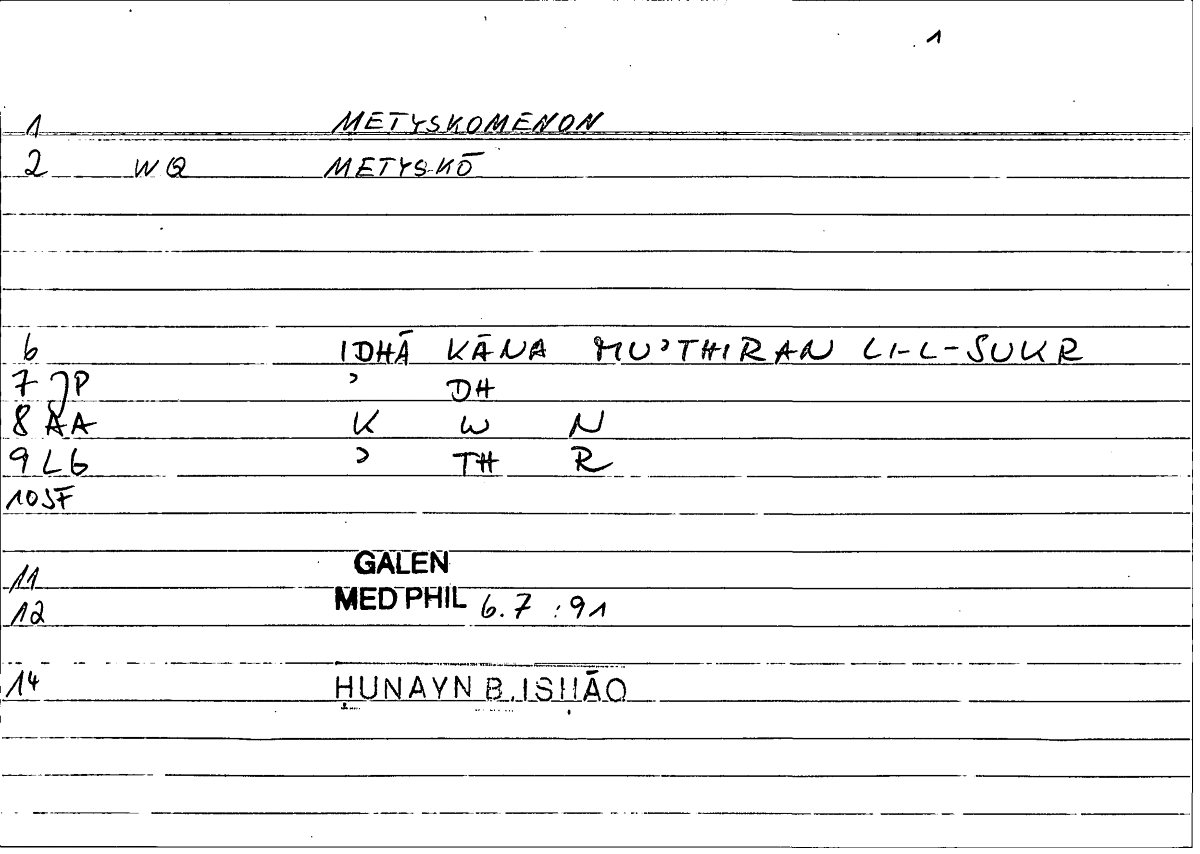 1
1 METYSKOMENON
2 WQ METYSKŌ
6 IDHĀ KĀNA MU’THIRAN LI-L-SUKR
7 JP ’ DH
8 AA K W N
9 LG ’ TH R
10 JF
11 GALEN
12 MED PHIL 6.7 :91
14 ḤUNAYN B. ISḤĀQ